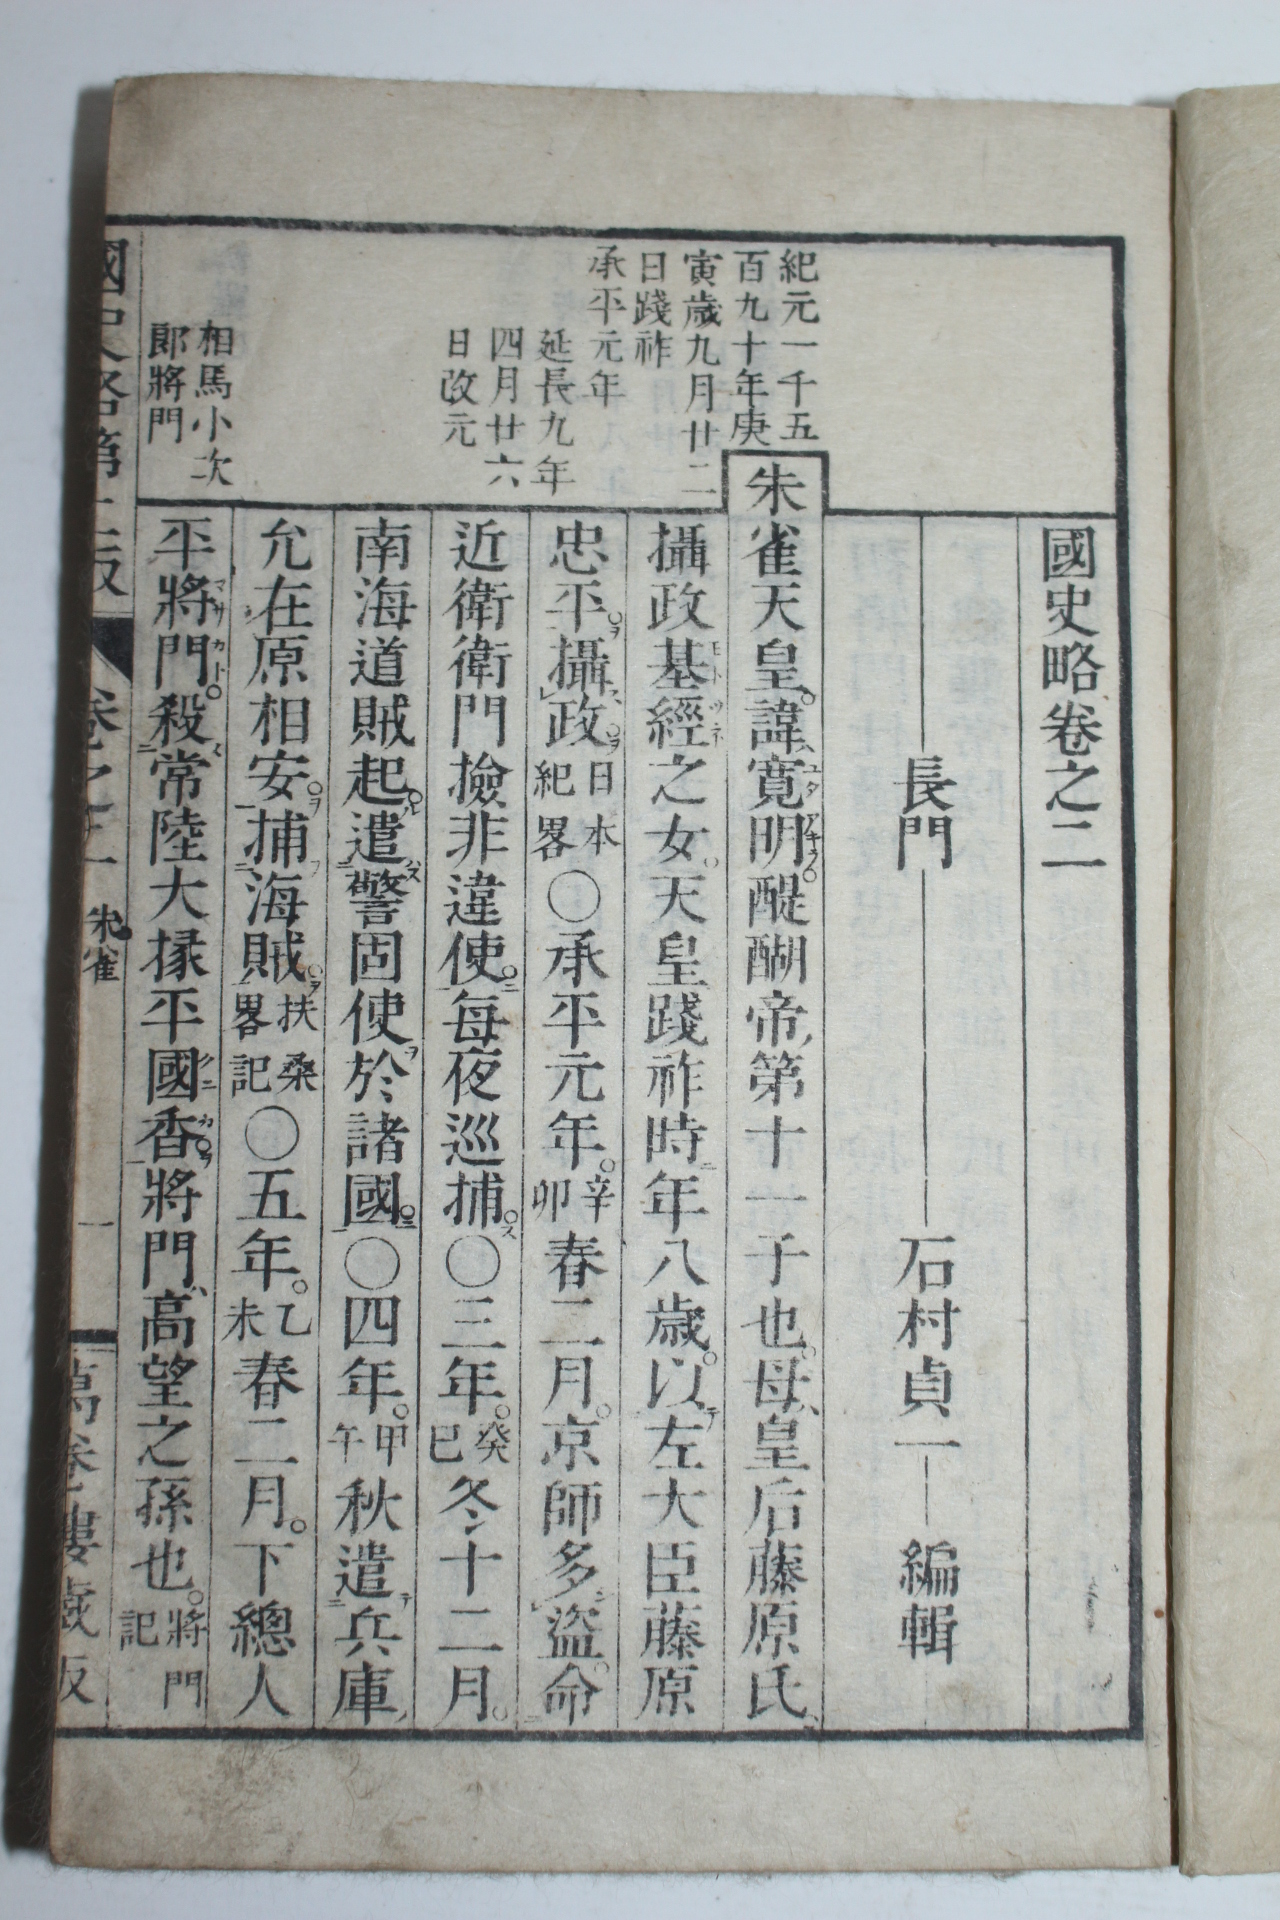 國史略卷之二
長門 石村貞一 編輯
紀元一千五
百九十年庚
寅歳九月廿二
日踐祚
承平元年
延長九年
四月廿六
日改元
相馬小次
郎將門
朱雀天皇。諱、寛明。醍醐帝、第十一子也。母、皇后藤原氏、
攝政基經之女。天皇踐祚時年八歳。以左大臣藤原
忠平。攝政。日本紀畧〇承平元年。辛卯春二月。京師多盜。命
近衛衛門撿非違使。每夜巡捕。〇三年。癸巳冬十二月。
南海道賊起。遣警固使於諸國。〇四年。甲午秋遣兵庫
允在原相安。捕海賊。扶桑畧記〇五年。乙未春二月。下總人
平將門。殺常陸大掾平國香。將門、高望之孫也。將門記
朱雀
一